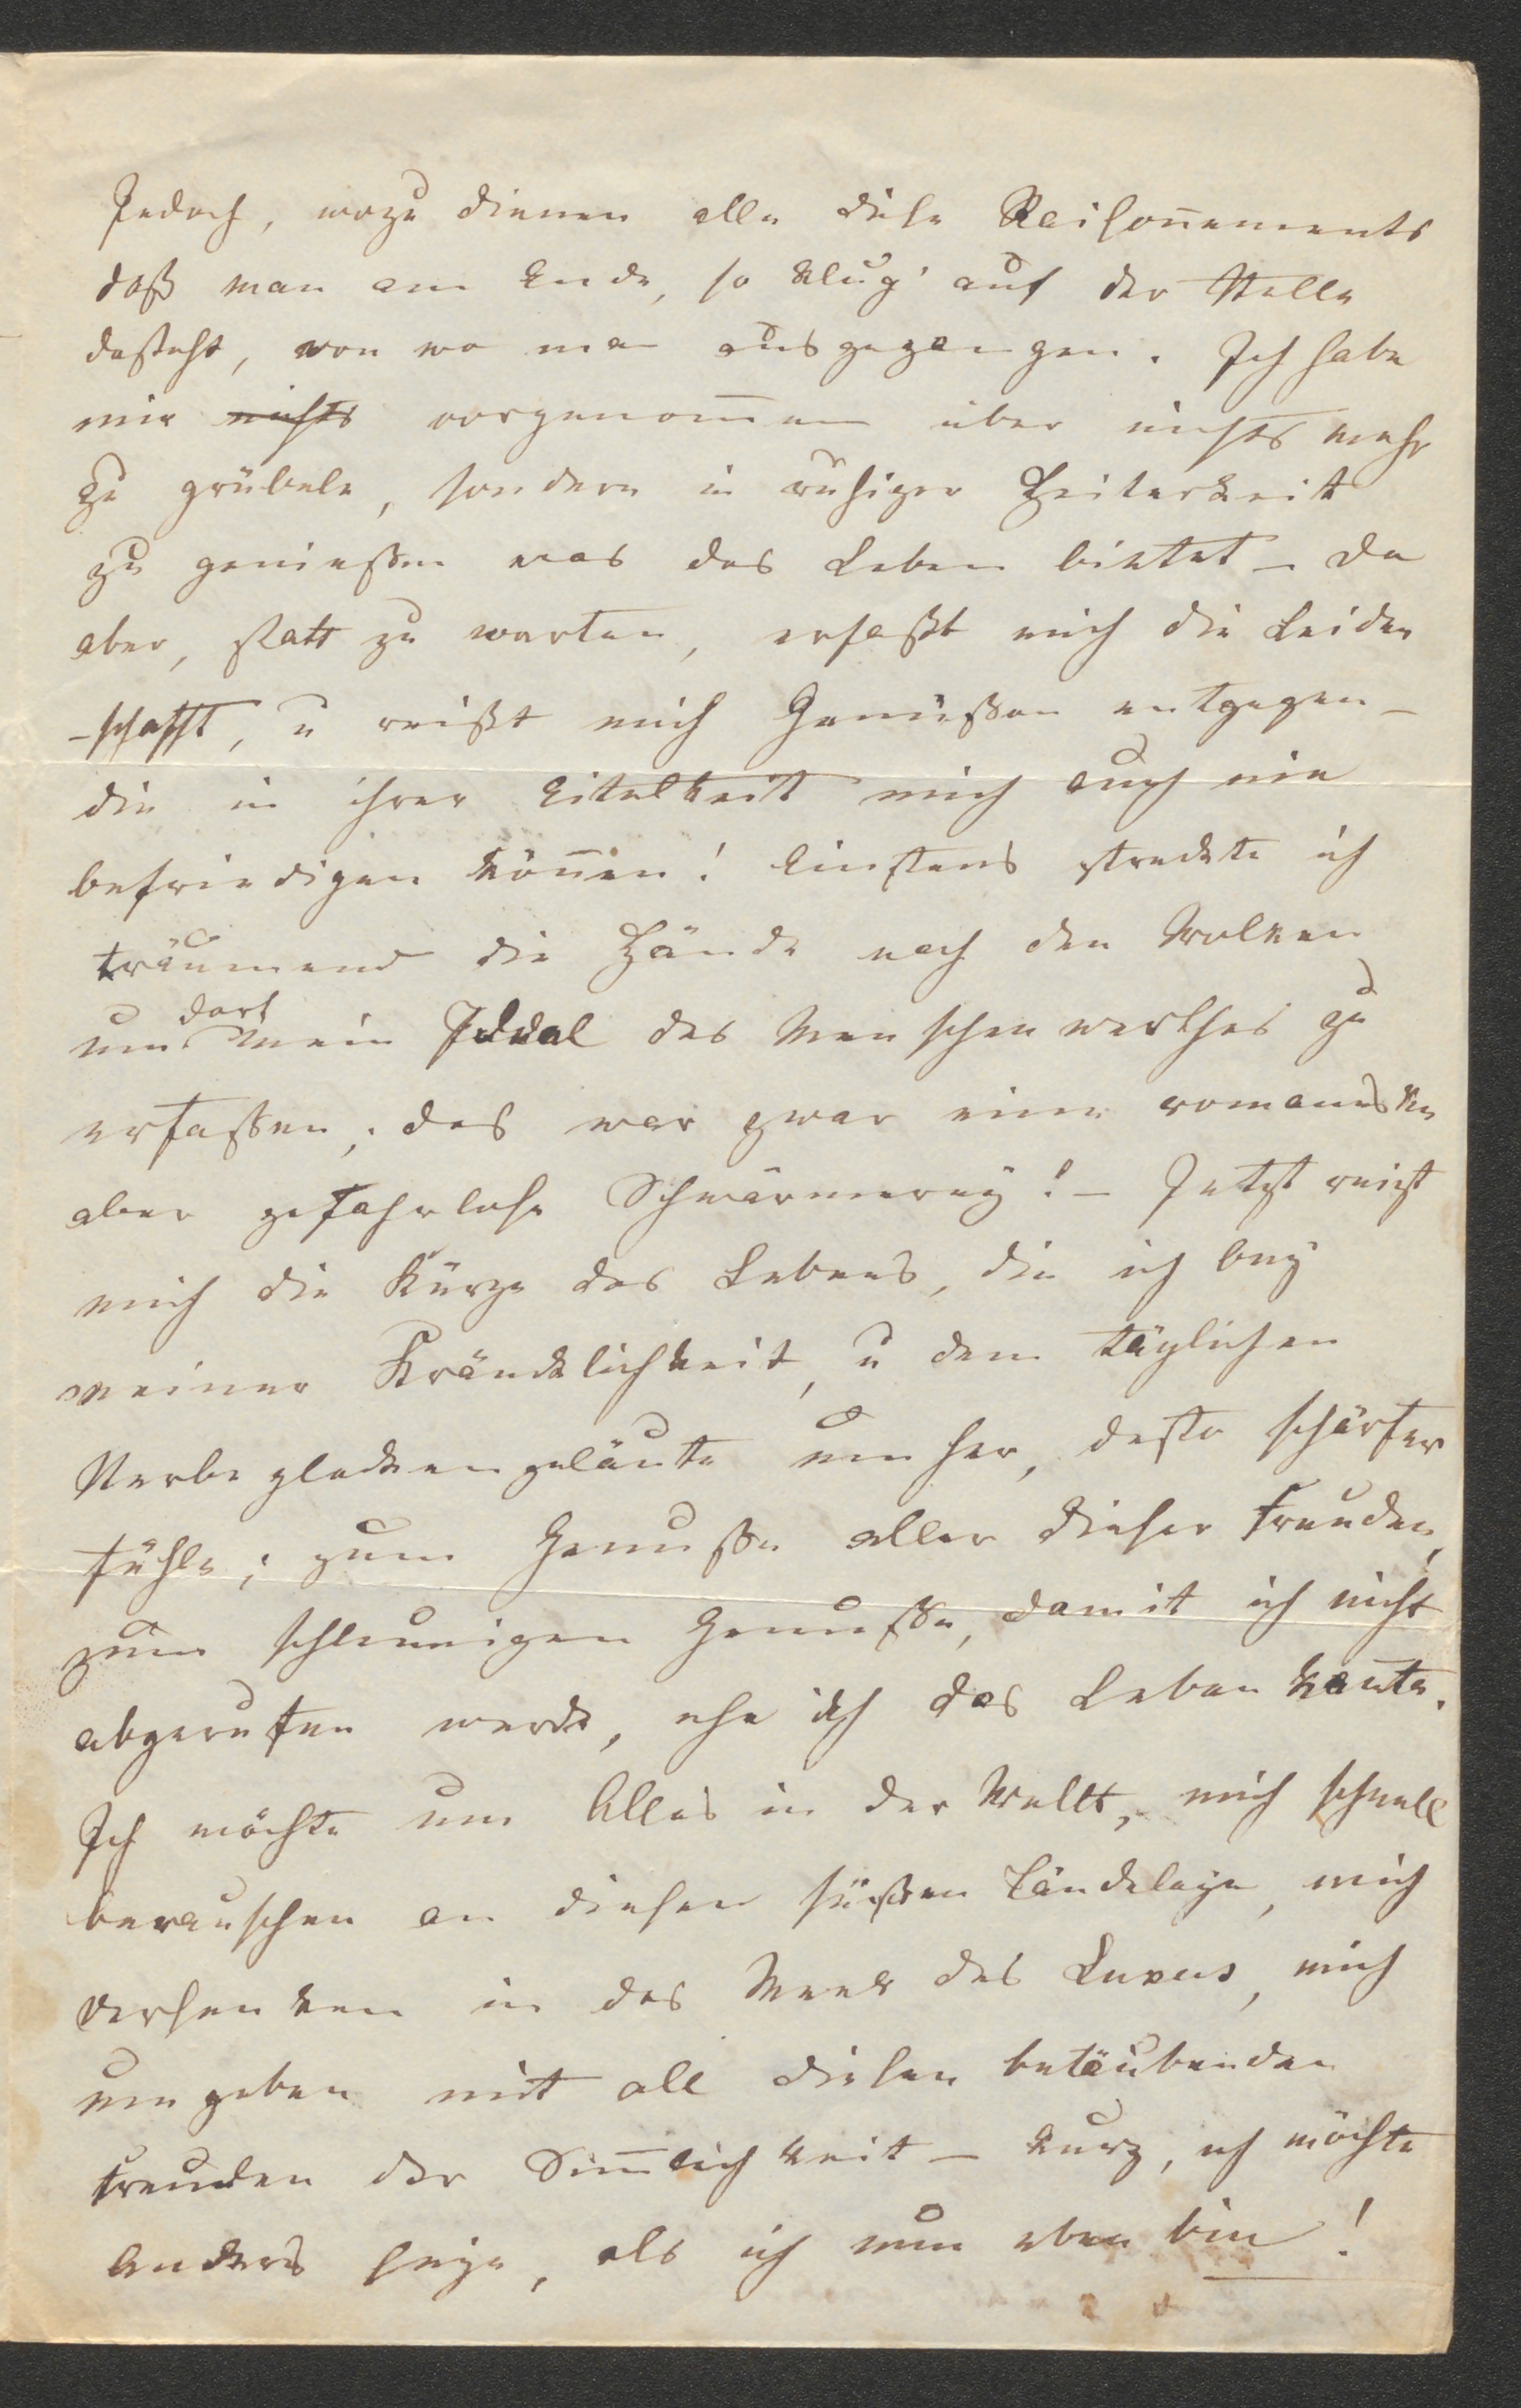 Jedoch, wozu dienen alle diese Raisonnements
daß man am Ende, so klug auf der Stelle
dasteht, von wo man ausgegangen. Ich habe
mir nichts vorgenom̅en über nichts mehr
zu grübeln, sondern in ruhiger Heiterkeit
zu genießen was das Leben bietet – da
aber, statt zu warten, erfaßt mich die Leiden
-schafft, u reißt mich Genüßen entgegen –
die in ihrer Eitelkeit mich auch nie
befriedigen kön̅en! Einstens streckte ich
träumend die Hände nach den Wolken
dort
um mein Ideal des Menschenwerthes zu
erfassen; das war zwar eine romaneske
aber gefahrlose Schwärmerey! – Jetzt reizt
mich die Kürze des Lebens, die ich bey
meiner Kräncklichkeit, u dem täglichen
Sterbeglockengeläute umher, desto schärfer
fühle; zum Genuße aller dieser Freuden,
zum schleunigen Genuße, damit ich nicht
abgerufen werde, ehe ich das Leben kan̅te.
Ich möchte um Alles in der Wellt, mich schnell
berauschen an diesen süßen Tändeleyn, mich
versenken in das Meer des Luxus, mich
umgeben mit all diesen betäubenden
Freuden der Sin̅lichkeit – kurz, ich möchte
Anders seyn, als ich nun eben bin!